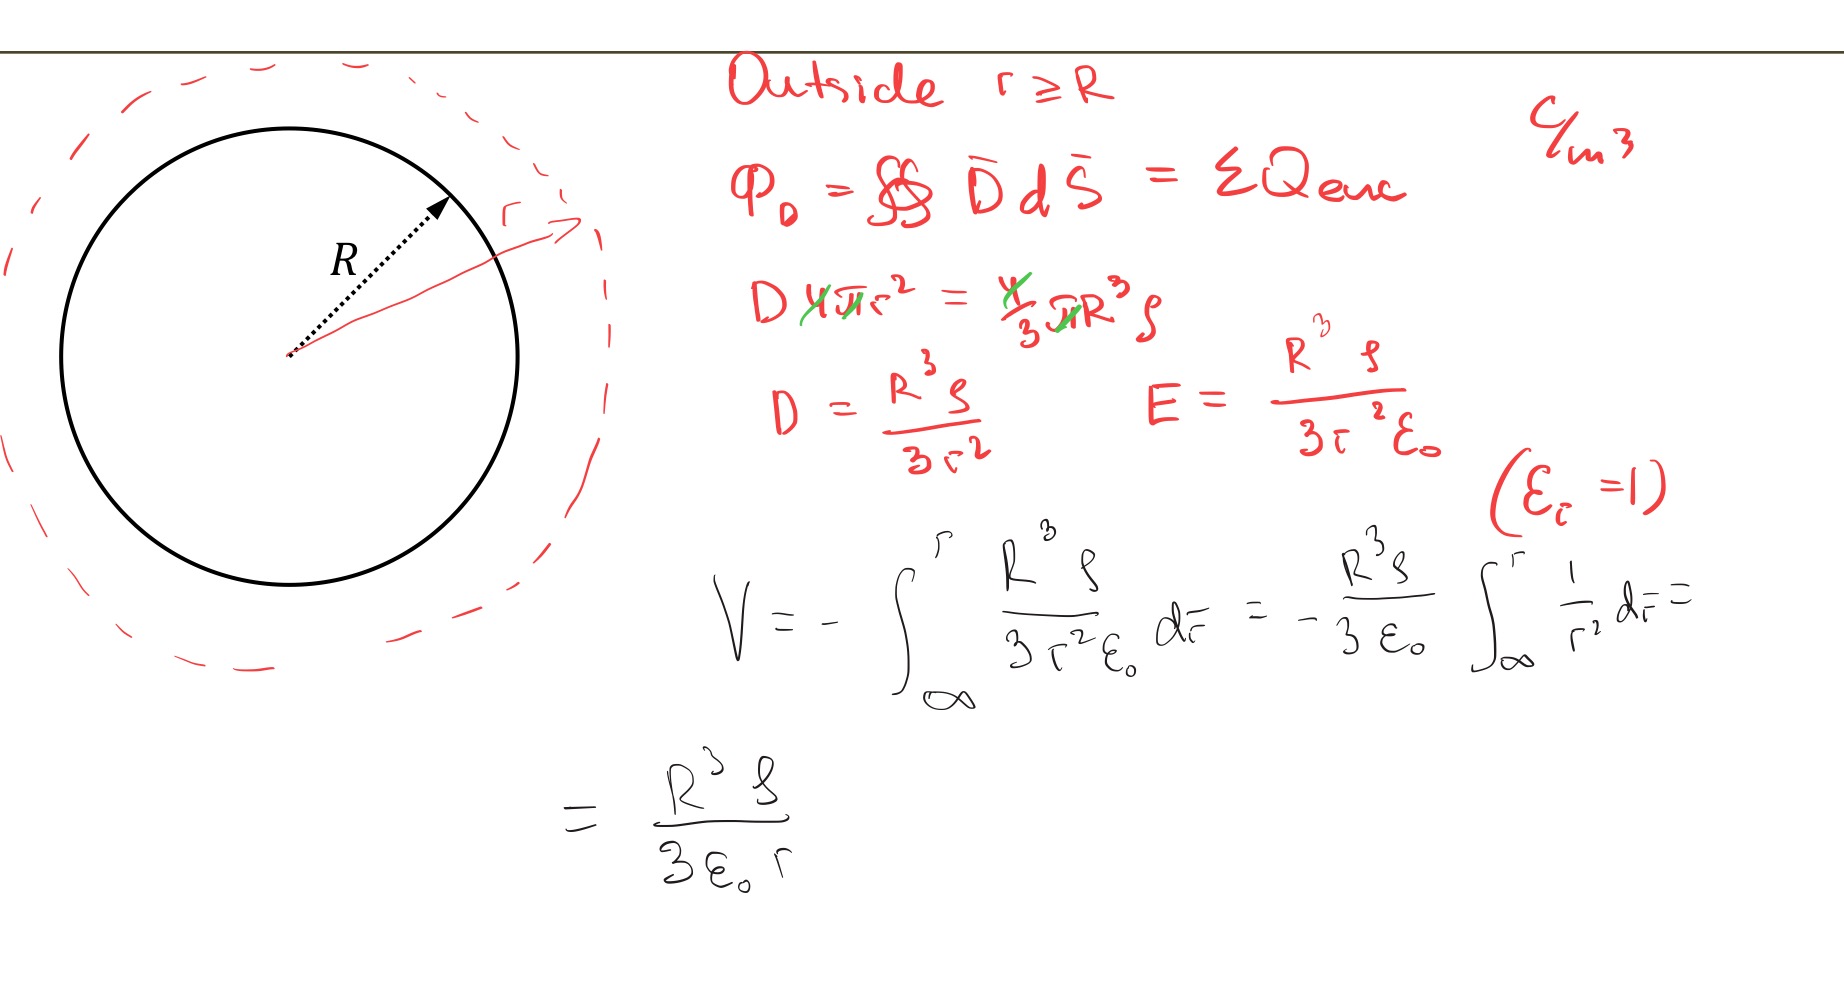 Outside r ≥ R
C/m³
Φ_D = ∯ D̄ d S̄ = ΣQenc
r
R
D 4πr² = 4/3 πR³ρ
D = R³ρ / 3r²
E = R³ρ / 3r²ε₀
(εᵣ = 1)
V = - ∫_∞^r R³ρ / 3r²ε₀ dr̄ = - R³ρ / 3ε₀ ∫_∞^r 1/r² dr̄ =
= R³ρ / 3ε₀r